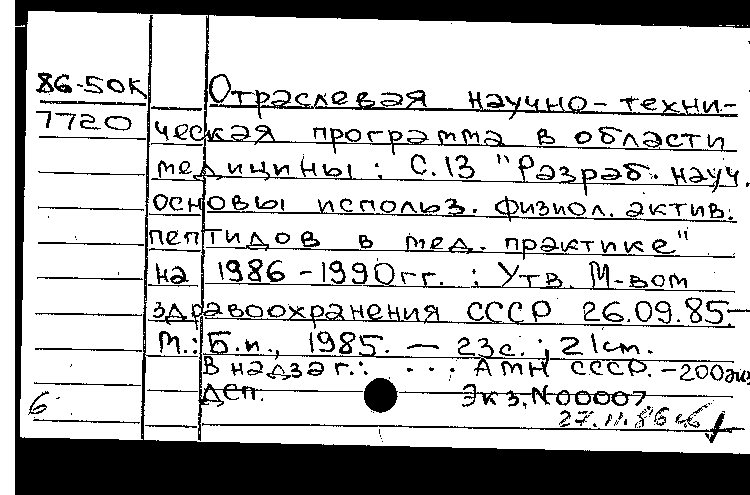 86-50К Отраслевая научно-техни-
7720 ческая программа в области
медицины: С.13 "Разраб. науч.
основы использ. физиол. актив.
пептидов в мед. практике"
на 1986-1990гг.: Утв. М-вом
здравоохранения СССР 26.09.85.—
М.: Б.и., 1985. — 23с.; 21см.
В надзаг.: ... АМН СССР. - 200экз
ДСП. Экз. N00007
б 27.11.86